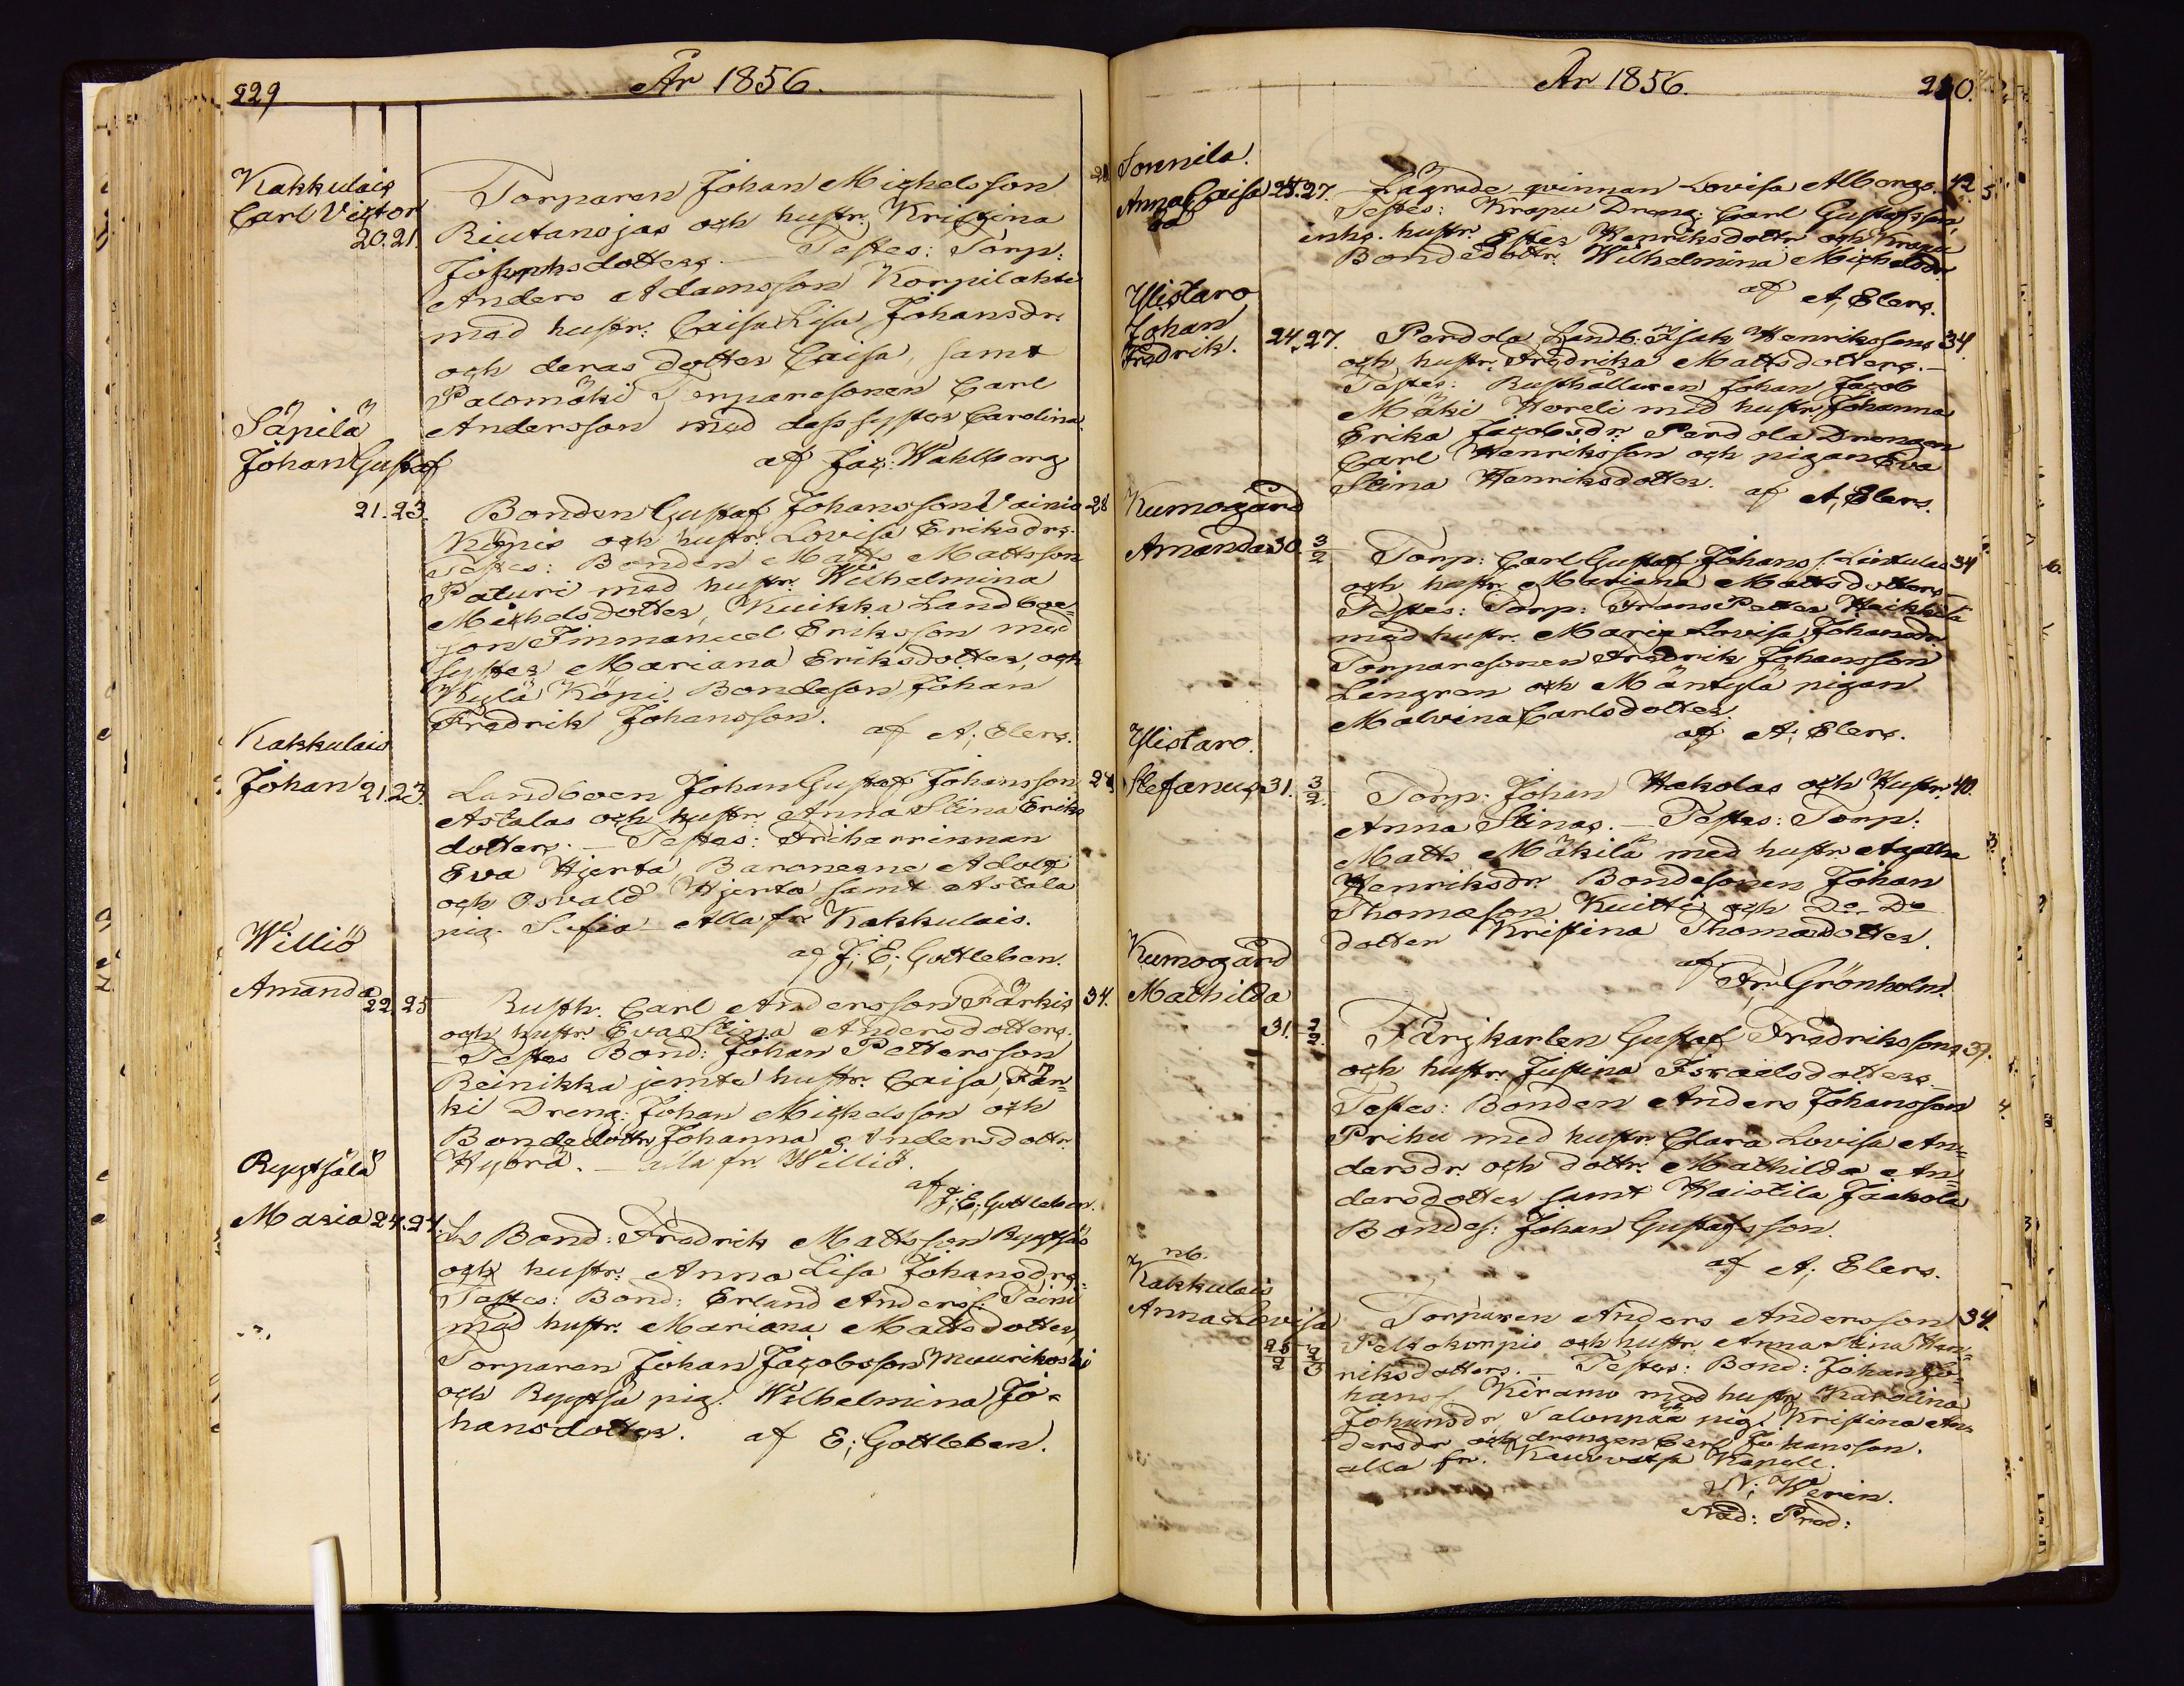 229
År 1856.
Kakkulais
Carl Victor
20. 21.
Torparen Johan Michelsson
28
Riutanojas och hustr. Kristina
Josephsdotters. Testes: Torp:
Anders Adamsson Korpilahti
med hustr: Caisa Lisa Johansdr.
och deras dotter Caisa, samt
Palomäki Torparesonen Carl
Andersson med dess syster Carolina.
af Jac: Wahlberg
Säpilä
Johan Gustaf
21. 23.
Bonden Gustaf Johansson Vainio
28
Köpis och hustr. Lovisa Eriksdrs.
Testes: Bonden Matts Mattsson
Paturi med hustr. Wilhelmina
Michelsdotter, Kuikka Landboe-
son Immanuel Eriksson med
syster Mariana Eriksdotter, och
Kylä Köpi Bondeson Johan
Fredrik Johansson.
af A; Elers.
Kakkulais
Johan 21. 23.
Landboen Johan Gustaf Johansson
Astalas och hustr. Anna Stina Eriks
dotters. Testes: Friherrinnan
Eva Hjerta, Baronerne Adolf
och Osvald Hjerta samt Astala
pig. Sofia Alla fr. Kakkulais.
af J; E; Gottleben.
Williö
Amanda
22. 25
Rusth. Carl Andersson Färkis
34.
och hustr. Eva Stina Andersdotters.
Testes Bond: Johan Pettersson
Reinikka jemte hustr. Caisa, Fär-
ki Dreng: Johan Michelsson och
Bondedottr Johanna Andersdottr.
Hyörä. Alla fr. Williö.
af J; E; Gottleben.
Ryytsälä
Maria 24. 27.
Bond: Fredrik Mattsson Ryytsäs
och hustr: Anna Lisa Johansdrs.
Testes: Bond: Erland Anders s. Teini
med hustr. Mariana Mattsdotter
Torparen Johan Jacobsson Maurikoski
och Ryytsä pig. Wilhelmina Jo-
hansdotter. af E; Gottleben.
År 1856.
230.
Sonnila.
Anna Caisa 25. 27.
Lägrade qvinnan Lovisa Albergs.
42
Testes: Krapu Dreng: Carl Gustafsson,
enkg. hustr. Ester Henriksdottr och Krapu
Bondedottr. Wilhelmina Michelsdr
af A; Elers.
Ylistaro
Johan
Fredrik.
24. 27.
Perdola Landb: Isak Henrikssons
34.
och hustr. Fredrika Mattsdotters.
Testes: Rusthållaren Johan Jacob
Mäki Horeli med hustr. Johanna
Erika Jacobsdr. Perdola Drengen
Carl Henriksson och pigan Eva
Stina Henriksdotter.
af A; Elers.
Kumogård
Amanda 30. 3/2
Torp: Carl Gustaf Johans s. Lintulas
34
och hustr. Mariana Mattsdotters
Testes: Torp: Frans Petter Heikkilä
med hustr. Maria Lovisa Johansdr.
Torparesonen Fredrik Johansson
Lingren och Mäntylä pigan
Malvina Carlsdotter.
af A; Elers.
Ylistaro.
Stefanus 31. 3/2.
Torp: Johan Hakolas och Hustr.
40.
Anna Stinas. Testes: Torp:
Matts Mäkilä med hustr. Agatha
Henriksdr. Bondesonen Johan
Thomasson Kuitti och Do Do
dotter Kristina Thomasdotter.
af Fr: Grönholm.
Kumogård
Mathilda
31. 2/2.
Färjkarlen Gustaf Fredrikssons
37.
och hustr. Justina Israelsdotters.
Testes: Bonden Anders Johansson
Prihu med hustr. Clara Lovisa An-
dersdr. och dottr. Mathilda An-
dersdotter samt Haistila Jaakola
Bondes: Johan Gustafsson.
af A; Elers.
nb.
Kakkulais
Anna Lovisa
25/2 2/3
Torparen Anders Andersson
34.
Peltokorpis och hustr. Anna Stina Hen-
riksdotters. Testes: Bond: Johan Jo-
hans s. Kiramo med hustr. Karolina
Johansdr. Salonpää pig: Kristina An-
dersdr och drengen Carl Johansson.
alla fr. Kauvatsa Kapell.
N; Weren.
Nåd: Pred: